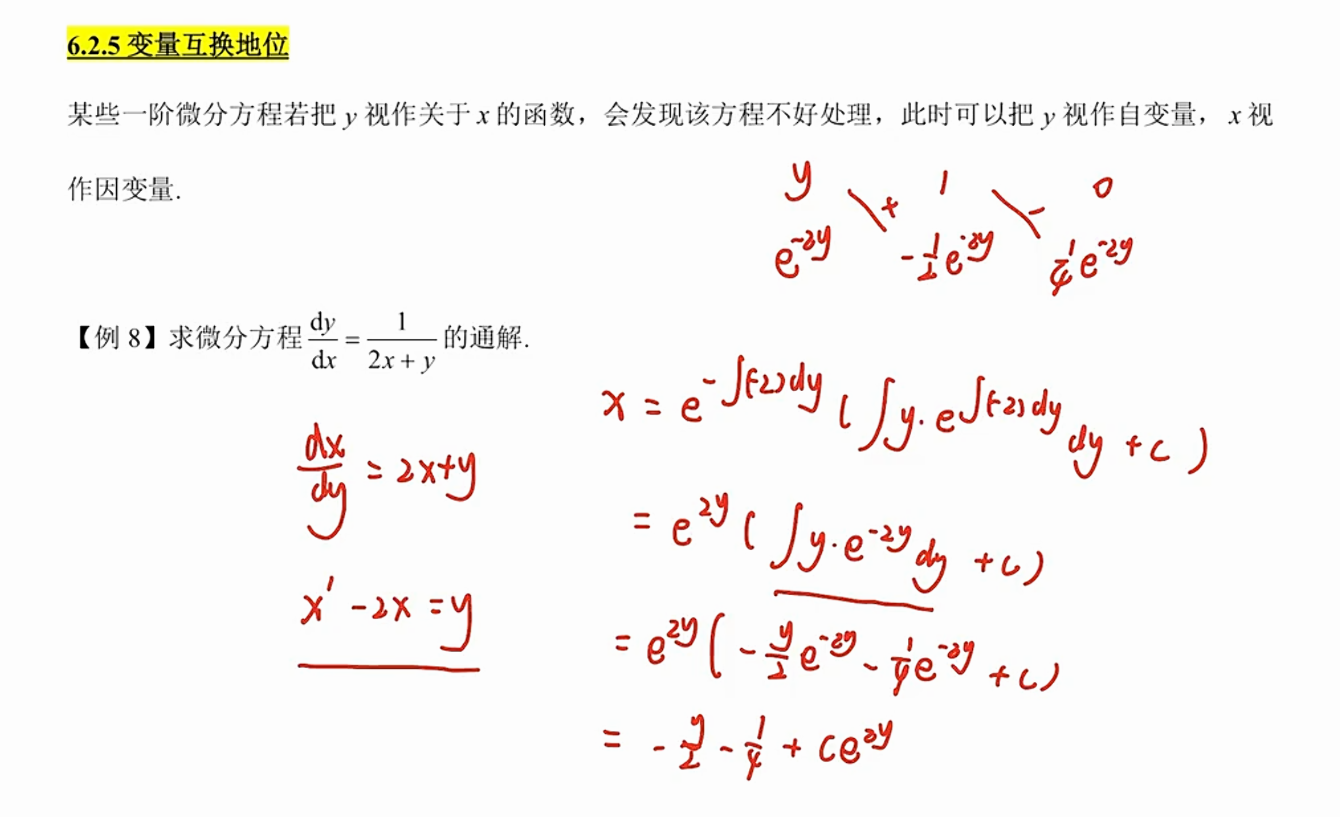 6.2.5 变量互换地位
某些一阶微分方程若把 y 视作关于 x 的函数，会发现该方程不好处理，此时可以把 y 视作自变量，x 视
作因变量.
y + 1 - 0
e^{-2y} -\frac{1}{2}e^{-2y} \frac{1}{4}e^{-2y}
【例 8】求微分方程 \frac{dy}{dx} = \frac{1}{2x+y} 的通解.
\frac{dx}{dy} = 2x+y
x' -2x = y
x = e^{-∫(-2)dy} ( ∫y·e^{∫(-2)dy} dy + C )
= e^{2y} ( ∫y·e^{-2y} dy + C )
= e^{2y} ( -\frac{y}{2}e^{-2y} - \frac{1}{4}e^{-2y} + C )
= -\frac{y}{2} - \frac{1}{4} + Ce^{2y}